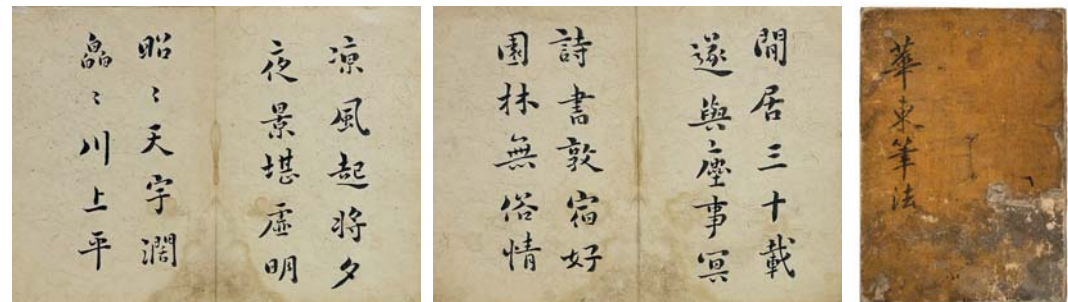 華東筆法
間居三十載
遂與塵事冥
詩書敦宿好
園林無俗情
凉風起將夕
夜景堪虛明
昭〻天宇濶
皛〻川上平